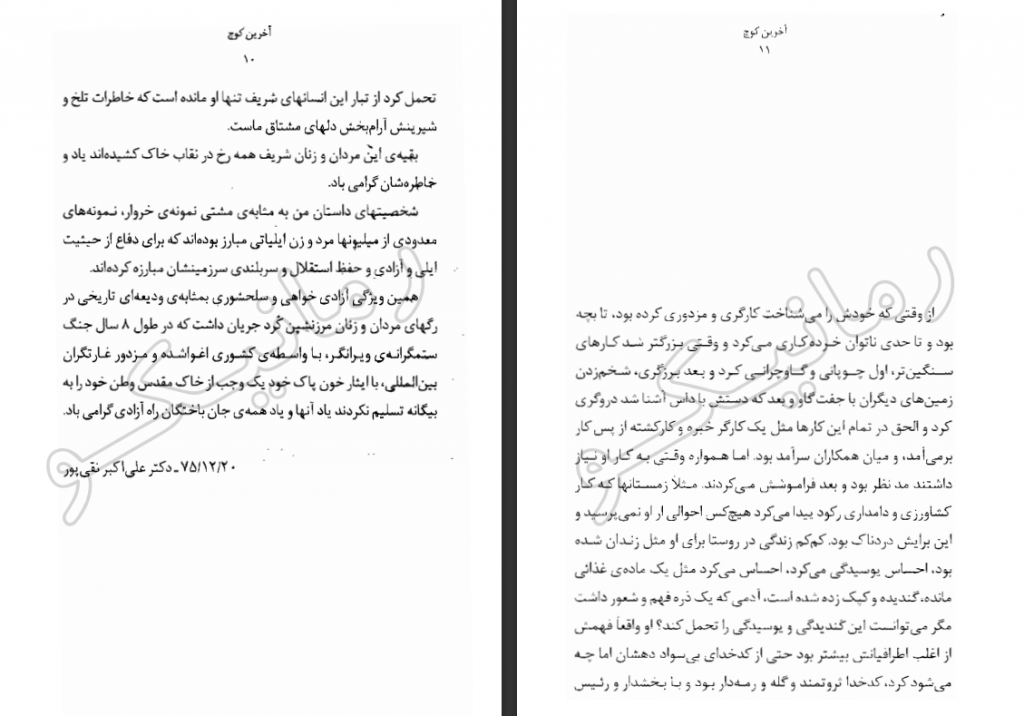 آخرین کوچ
۱۰
تحمل کرد از تبار این انسانهای شریف تنها او مانده است که خاطرات تلخ و
شیرینش آرام‌بخش دلهای مشتاق ماست.
بقیه‌ی این مردان و زنان شریف همه رخ در نقاب خاک کشیده‌اند یاد و
خاطره‌شان گرامی باد.
شخصیتهای داستان من به مثابه‌ی مشتی نمونه‌ی خروار، نمونه‌های
معدودی از میلیونها مرد و زن ایلیاتی مبارز بوده‌اند که برای دفاع از حیثیت
ایلی و آزادی و حفظ استقلال و سربلندی سرزمینشان مبارزه کرده‌اند.
همین ویژگی آزادی خواهی و سلحشوری بمثابه‌ی ودیعه‌ای تاریخی در
رگهای مردان و زنان مرزنشین کُرد جریان داشت که در طول ۸ سال جنگ
ستمگرانه‌ی ویرانگر، با واسطه‌ی کشوری اغواشده و مزدور غارتگران
بین‌المللی، با ایثار خون پاک خود یک وجب از خاک مقدس وطن خود را به
بیگانه تسلیم نکردند یاد آنها و یاد همه‌ی جان باختگان راه آزادی گرامی باد.
۷۵/۱۲/۲۰ ـ دکتر علی‌اکبر نقی‌پور
آخرین کوچ
۱۱
از وقتی که خودش را می‌شناخت کارگری و مزدوری کرده بود، تا بچه
بود و تا حدی ناتوان خرده‌کاری می‌کرد و وقتی بزرگتر شد کارهای
سنگین‌تر، اول چوپانی و گاوچرانی کرد و بعد برزگری، شخم‌زدن
زمین‌های دیگران با جفت گاو و بعد که دستش با داس آشنا شد دروگری
کرد و الحق در تمام این کارها مثل یک کارگر خبره و کارکشته از پس کار
برمی‌آمد، و میان همکاران سرآمد بود. اما همواره وقتی به کار او نیاز
داشتند مد نظر بود و بعد فراموشش می‌کردند. مثلاً زمستانها که کار
کشاورزی و دامداری رکود پیدا می‌کرد هیچ‌کس احوالی از او نمی‌پرسید و
این برایش دردناک بود. کم‌کم زندگی در روستا برای او مثل زندان شده
بود، احساس پوسیدگی می‌کرد، احساس می‌کرد مثل یک ماده‌ی غذائی
مانده، گندیده و کپک زده شده است، آدمی که یک ذره فهم و شعور داشت
مگر می‌توانست این گندیدگی و پوسیدگی را تحمل کند؟ او واقعاً فهمش
از اغلب اطرافیانش بیشتر بود حتی از کدخدای بی‌سواد دهشان اما چه
می‌شود کرد، کدخدا ثروتمند و گله و رمه‌دار بود و با بخشدار و رئیس
رمانیکو
رمانیکو